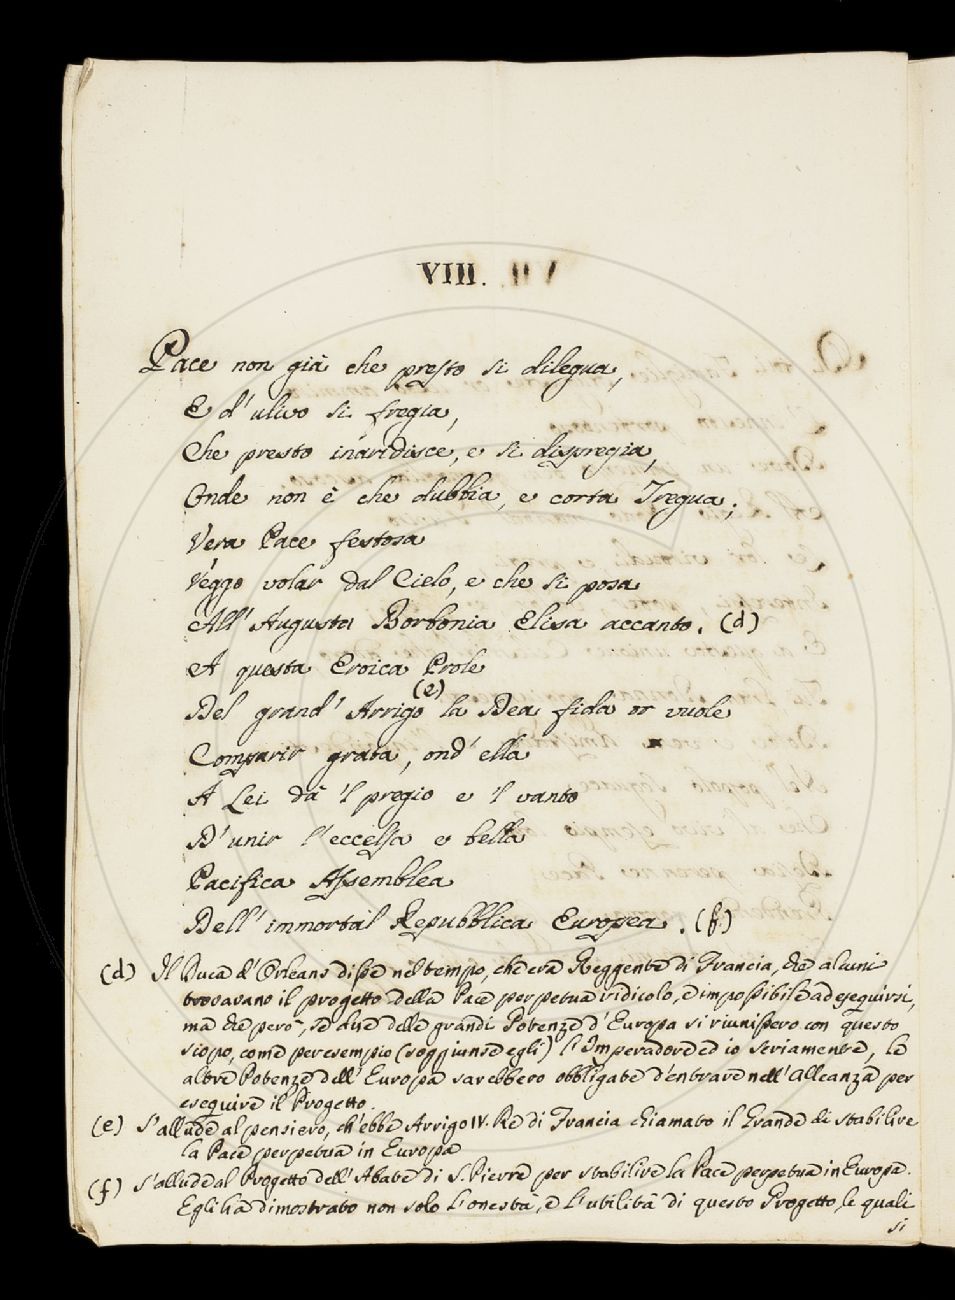 VIII.
Pace non già che presto si dilegua,
E d'ulivo si fregia,
Che presto inaridisce, e si dispregia,
Onde non è che dubbia, e corta Tregua;
Vera Pace festosa
Veggo volar dal Cielo, e che si posa
All'Augusta Borbonia Elisa accanto. (d)
A questa Eroica Prole
Del grand'Arrigo (e) la Dea fida or vuole
Comparir grata, ond'ella
A Lei dà 'l pregio e 'l vanto
D'unir l'eccelsa e bella
Pacifica Assemblea
Dell'immortal Repubblica Europea. (f)
(d) Il Duca d'Orleans disse nel tempo, che era Reggente di Francia, che alcuni
trovavano il progetto della Pace perpetua ridicolo, e impossibile ad eseguirsi,
ma che però, se due delle grandi Potenze d'Europa si riunissero con questo
scopo, come per esempio (soggiunse egli) l'Imperadore ed io seriamente, le
altre Potenze dell'Europa sarebbero obbligate d'entrare nell'Alleanza per
eseguire il Progetto.
(e) S'allude al pensiero, ch'ebbe Arrigo IV. Re di Francia chiamato il Grande di stabilire
la Pace perpetua in Europa
(f) S'allude al Progetto dell'Abate di S. Pierre per stabilire la Pace perpetua in Europa.
Egli ha dimostrato non solo l'onestà, e l'utilità di questo Progetto, le quali
si